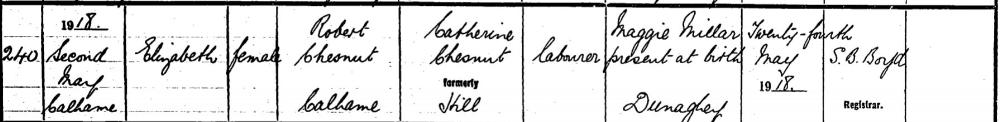 1918. Robert Catherine Maggie Millar Twenty-fourth
240 Second Elizabeth female Chesnut Chesnut Labourer present at birth May S.B. Boyd
May formerly 1918.
Calhame Calhame Hill Dunaghey Registrar.